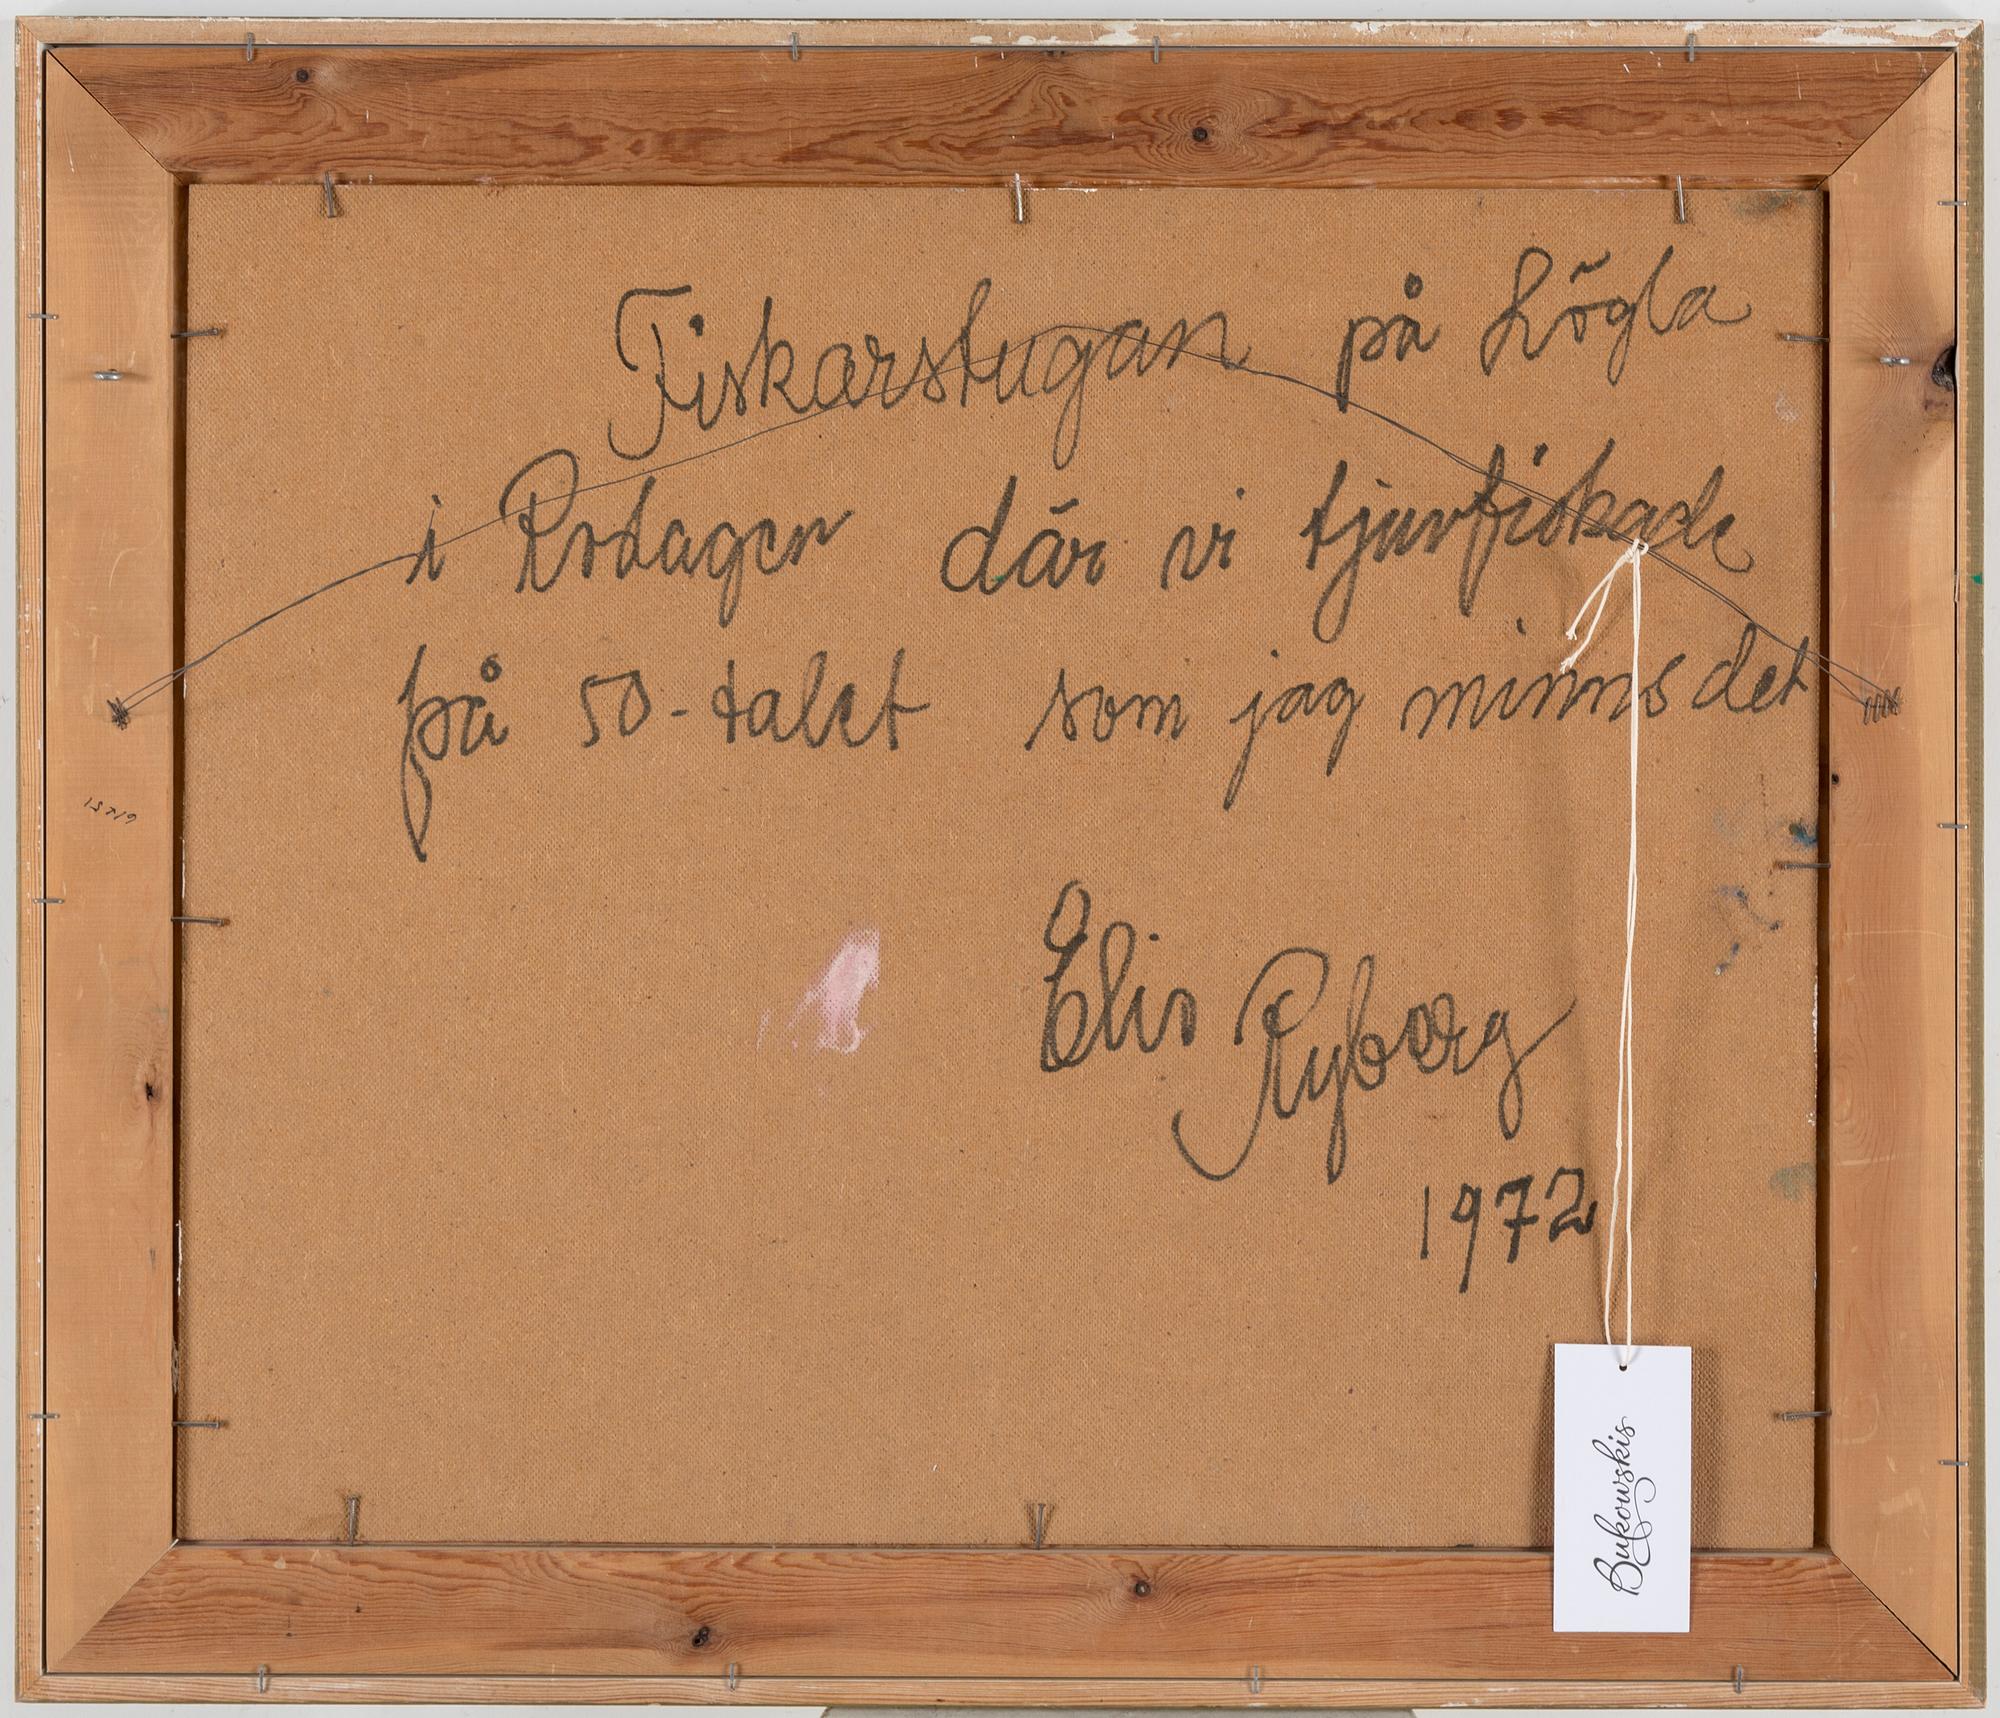 Fiskarstugan på Lögla
i Roslagen där vi tjuvfiskade
på 50-talet som jag minns det
Elis Ryborg
1972
Bukowskis